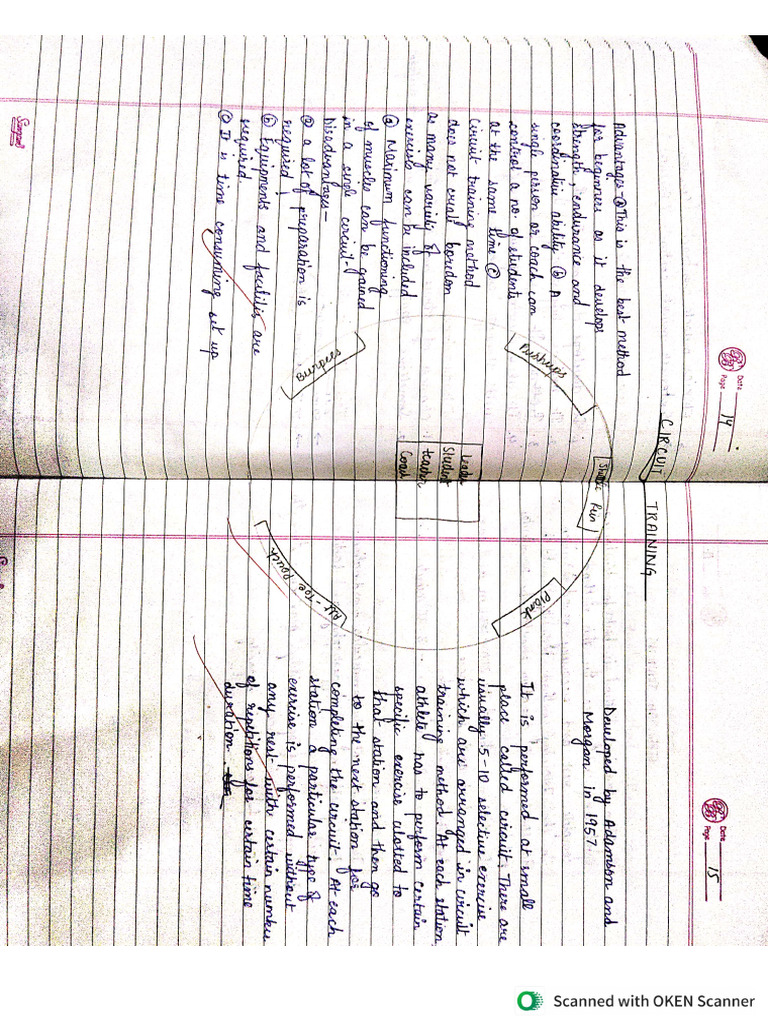 Date
Page 14
CIRCUIT TRAINING
Advantages - ⓐ This is the best method
for beginners as it develops
strength, endurance and
coordinative ability ⓑ A
single person or coach can
control a no. of students
at the same time ⓒ
Circuit training method
does not creat boredom
as many variety of
exercises can be included
ⓓ Maximum functioning
of muscles can be gained
in a single circuit -
Disadvantages -
ⓐ a lot of preparation is
required
ⓑ Equipments and facilities are
required.
ⓒ It is time consuming set up
Pushups
Burpees
Run
Plank
Leader
Student
teacher
Coach
Date
Page 15
Developed by Adamson and
Morgan in 1957
It is performed at small
place called circuit. There are
usually 5-10 selective exercise
which are arranged in circuit
training method. At each station
athlete has to perform certain
specific exercise alotted to
that station and then go
to the next station for
completing the circuit. At each
station a particular type of
exercise is performed without
any rest with certain number
of repetitions for certain time
duration.
Scanned with OKEN Scanner